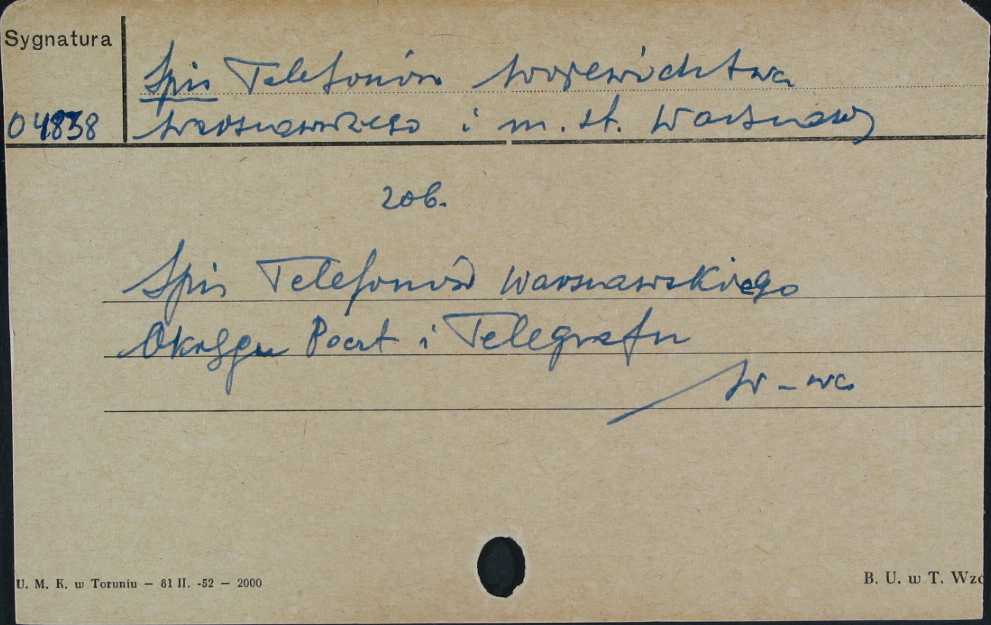 Sygnatura
Spis Telefonów województwa
04838 warszawskiego i m. st. Warszawy
zob.
Spis Telefonów Warszawskiego
Okręgu Poczt i Telegrafu
W-wa
U. M. K. w Toruniu — 61 II. -52 — 2000
B. U. w T. Wzo